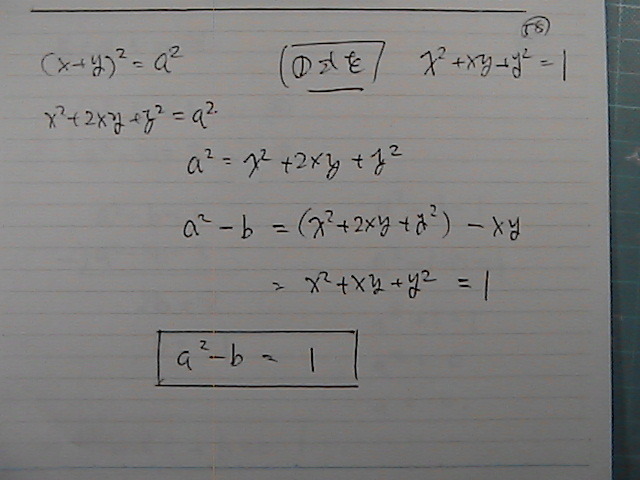 (58)
(x+y)² = a² (①式を) x²+xy+y² = 1
x²+2xy+y² = a²
a² = x²+2xy+y²
a²-b = (x²+2xy+y²) - xy
= x²+xy+y² = 1
a²-b = 1